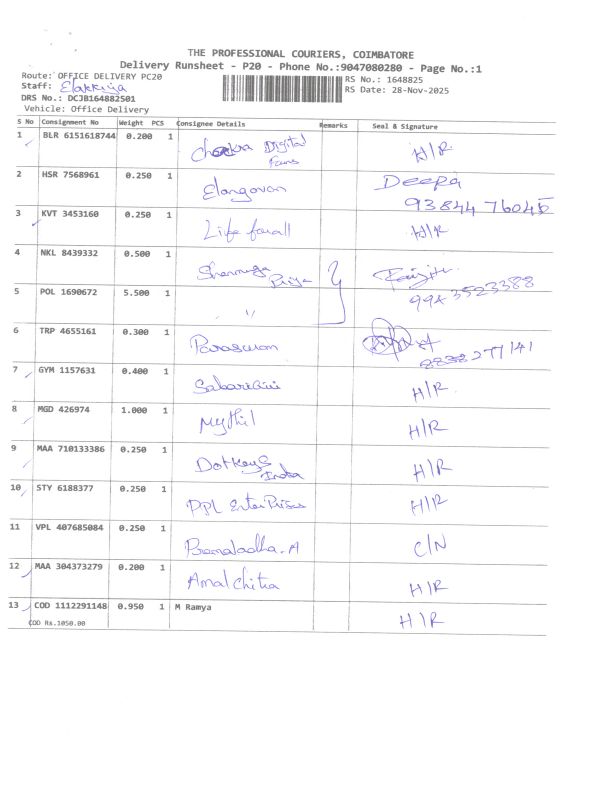 THE PROFESSIONAL COURIERS, COIMBATORE
Delivery Runsheet - P20 - Phone No.:9047080280 - Page No.:1
Route: OFFICE DELIVERY PC20 RS No.: 1648825
Staff: Elakkiya RS Date: 28-Nov-2025
DRS No.: DCJB164882501
Vehicle: Office Delivery
S No Consignment No Weight PCS Consignee Details Remarks Seal & Signature
1 BLR 6151618744 0.200 1 Digital H/R
2 HSR 7568961 0.250 1 Elangovan Deepa
93844 76045
3 KVT 3453160 0.250 1 Life forall H/R
4 NKL 8439332 0.500 1 Shanmuga
Priya
9943523388
5 POL 1690672 5.500 1 "
6 TRP 4655161 0.300 1
8838277141
7 GYM 1157631 0.400 1 H/R
8 MGD 426974 1.000 1 Mythil H/R
9 MAA 710133386 0.250 1 Dotkeys
India H/R
10 STY 6188377 0.250 1 PPL EnterPrises H/R
11 VPL 407685084 0.250 1 C/N
12 MAA 304373279 0.200 1 Amal chitra H/R
13 COD 1112291148 0.950 1 M Ramya H/R
COD Rs.1050.00